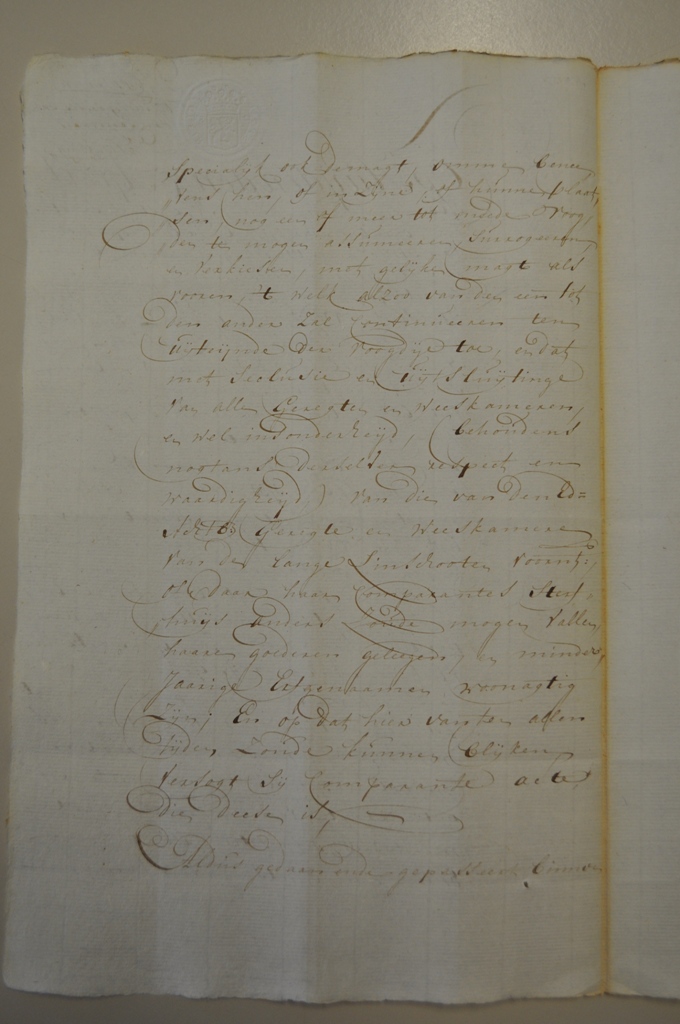 Specialijk ook de magt, omme bene,
vens hem, of in zijn, of hunne plaat,
sen, nog een of meer tot mede voog,
den te mogen assumeeren, surrogeeren
en verkiesen, met gelijke magt als
vooren, 't welk alzoo van den een tot
den ander zal continueeren ten
uijteijnde der voogdije toe, en dat
met seclusie en uijtsluijtinge
van alle Geregten en weeskameren,
en wel insonderheijd, (behoudens
nogtans derselver respect en
waardigheijd) van die van den Ed=
Achtb: Geregte en weeskamere
van de Lange Linschooten voornt:,
of daar haar Comparantes sterf,
huijs anders zoude mogen vallen,
haare goederen geleegen, en minder,
jaarige Erfgenaamen woonagtig
zijn; En op dat hier van ten allen
tijden zoude kunnen blijken
versogt sij Comparante acte,
die deese is,
Aldus gedaan ende gepasseert binnen